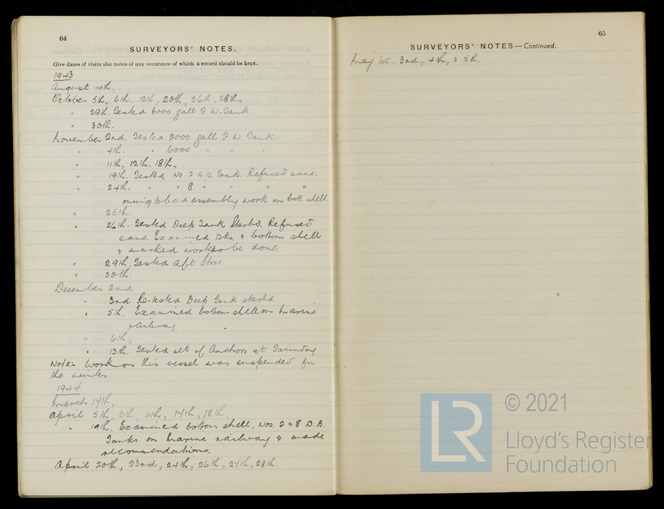 64
SURVEYORS' NOTES.
Give dates of visits also notes of any occurence of which a record should be kept.
1943
August 4th,
October 5th, 6th, 12th, 20th, 26th, 28th,
" 29th. Tested 6000 gall F.W. Tank
" 30th.
November 2nd. Tested 2000 gall F.W. Tank
" 4th. " 6000 " " "
" 11th, 12th, 18th,
" 19th, Tested No. 2 D.B. Tank. Refused same.
" 24th. " " 8 " " " "
owing to bad assembly work on bott shell
" 25th
" 26th. Tested Deep Tank Starbd. Refused
same. Examined Bks & bottom shell
& marked work to be done.
" 29th, Tested Aft
" 30th.
December 2nd
" 3rd Re-tested Deep Tank starbd.
" 5th. Examined bottom shell on marine
railway
" 6th,
" 13th. Tested set of Anchors at
Note: Work on this vessel was suspended for
the winter
1944
March 17th,
April 5th, 6th, 11th, 17th, 18th,
" 19th. Examined bottom shell, Nos. 2 & 8 D.B.
Tanks on marine railway & made
recommendations
April 20th, 23rd, 24th, 26th, 27th, 28th
65
SURVEYORS' NOTES—Continued.
May 1st, 3rd, 4th, & 5th.
LR
© 2021
Lloyd's Register
Foundation